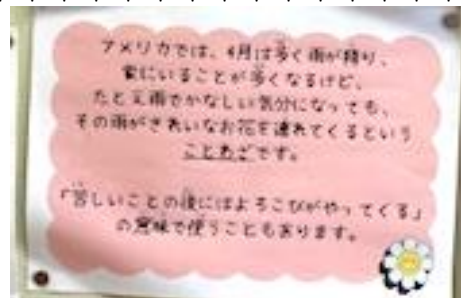 アメリカでは、4月は多く雨が降り、
家にいることが多くなるけど、
たとえ雨でかなしい気分になっても、
その雨がきれいなお花を連れてくるという
ことわざです。
「苦しいことの後にはよろこびがやってくる」
の意味で使うこともあります。